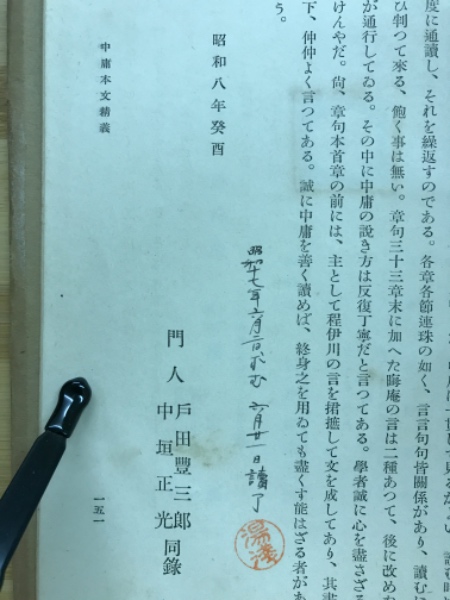 度に通讀し、それを繰返すのである。各章各節連珠の如く、言言句句皆關係があり、讀むに
ひ判つて來る、飽く事は無い。章句三十三章末に加へた晦庵の言は二種あつて、後に改めた
が通行してゐる。その中に中庸の說き方は反復丁寧だと言つてある。學者誠に心を盡さざる
けんやだ。尙、章句本首章の前には、主として程伊川の言を捃摭して文を成してあり、其書
下、仲仲よく言つてある。誠に中庸を善く讀めば、終身之を用ゐても盡くす能はざる者があ
う。
昭和八年癸酉
昭和十七年六月二日求む 六月廿一日讀了
湯淺
門人 戶田豐三郞
中垣正光 同錄
中庸本文精義
一五一